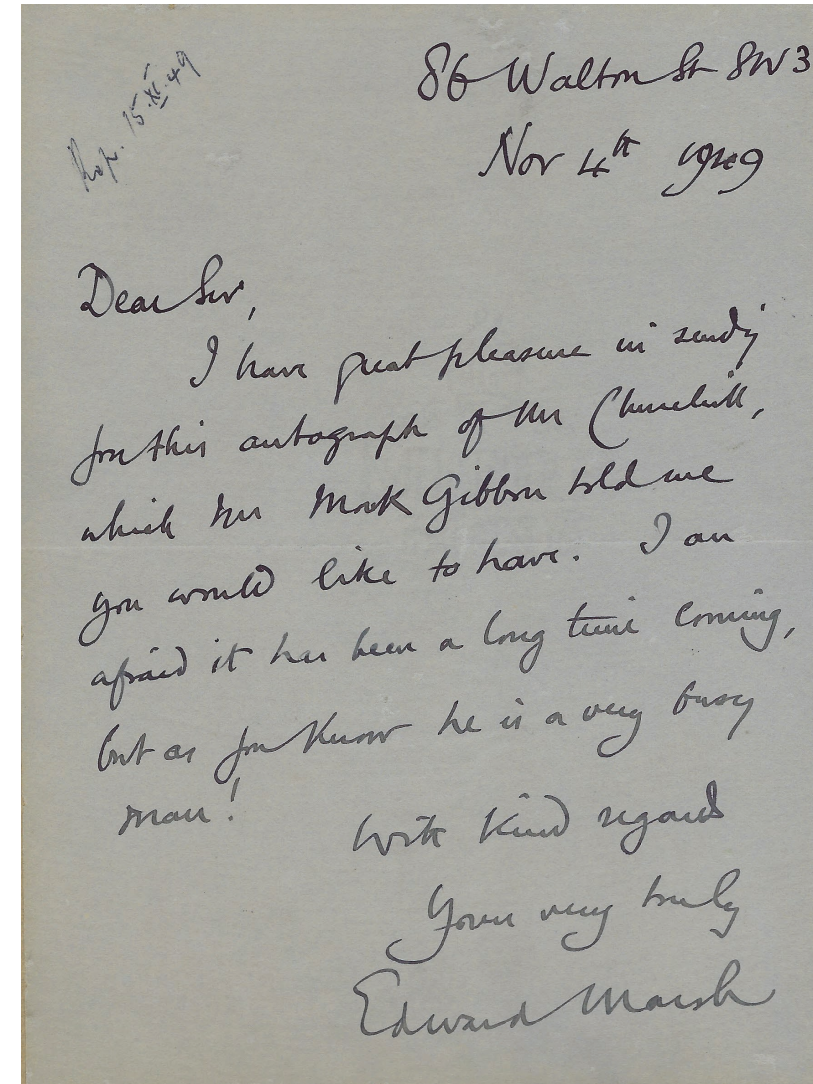 Rép. 15.XI.49
86 Walton St SW3
Nov 4th 1949
Dear Sir,
I have great pleasure in sending
you this autograph of Mr Churchill,
which Mr Monk Gibbon told me
you would like to have. I am
afraid it has been a long time coming,
but as you know he is a very busy
man!
With kind regards
Yours very truly
Edward Marsh